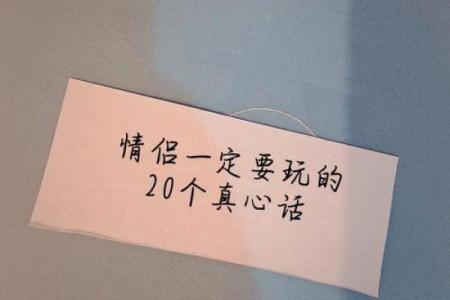 情侣一定要玩的
20个真心话